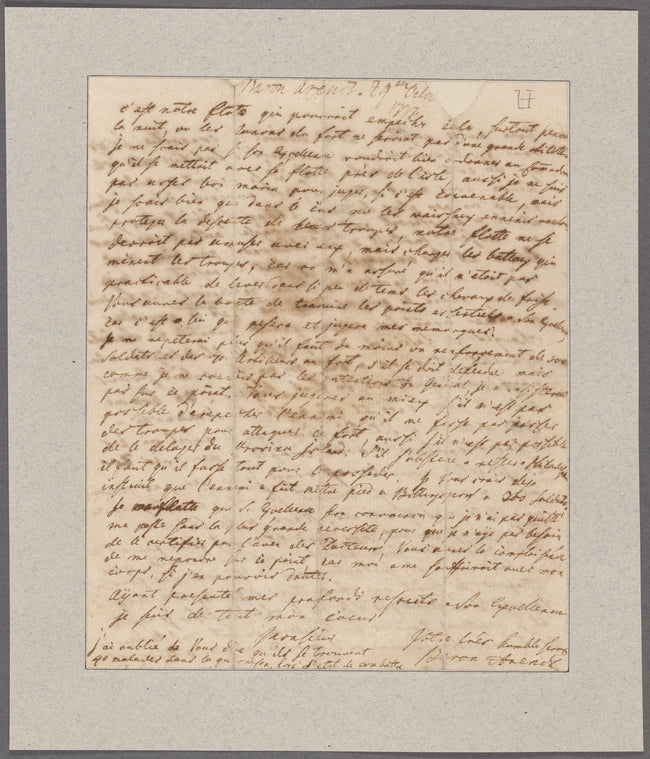 Baron Arend. 29th Octr
1777
c'est notre flotte qui pourroit empecher cela, surtout pendant
la nuit, ou les du fort ne seroient pas d'une grande utilité
je ne sais pas si Son Excellence voudroit bien ordonner au Comodore
qu'il se mettoit avec sa flotte près de l'isle aussi je ne suis
pas assez bon marin pour juger, si c'est convenable, mais
je sais bien que dans le cas que les vaisseaux ennemis voulur
proteger la descente de leurs trouppes, notre flotte ne se
devroit pas amuser avec eux, mais charger les batteaux qui
menent les troupes, car on m'a assuré qu'il n'etoit pas
practicable de lever dans si peu de tems les chevaux de frise
Vous aurez la bonté de les points essentiels a Son Excellence
car c'est a lui qui pesera et jugera mes remarques.
je ne repeterai plus qu'il faut du moins un renforcement de 300
soldats et des 70 Artilleurs au fort, s'il se doit defendre mais
comme je ne connois pas les intentions du General je n'insisterai
pas sur ce point. Vous jugerez au mieux s'il n'est pas
possible d'empecher l'ennemi qu'il ne fasse pas passer
des trouppes pour attaquer ce fort, aussi s'il n'est pas possible
de le deloger du Province Island. S'il subsiste a rester a
il faut qu'il fasse tout pour le posseder. je Vous crois deja
instruit que l'ennemi a fait mettre pied a Billingsport a 200 soldats
je me flatte que S. Excellence sera convaincu que je n'ai pas quitté
ma poste sans la plus grande necessité, pour que je n'aye pas besoin
de le certifier par l'avis des Docteurs, Vous aurez la complaisance
de me repondre sur ce point car mon ame souffriroit avec mon
corps, si j'en pouvois douter.
Ayant presenté mes profonds respects a Son Excellence
je suis de tout mon coeur
Monsieur
Votre très humble serv
Baron d'Arendt
j'ai oublié de Vous dire qu'ils se trouvent
40 malades dans la hors d'etat de combattre